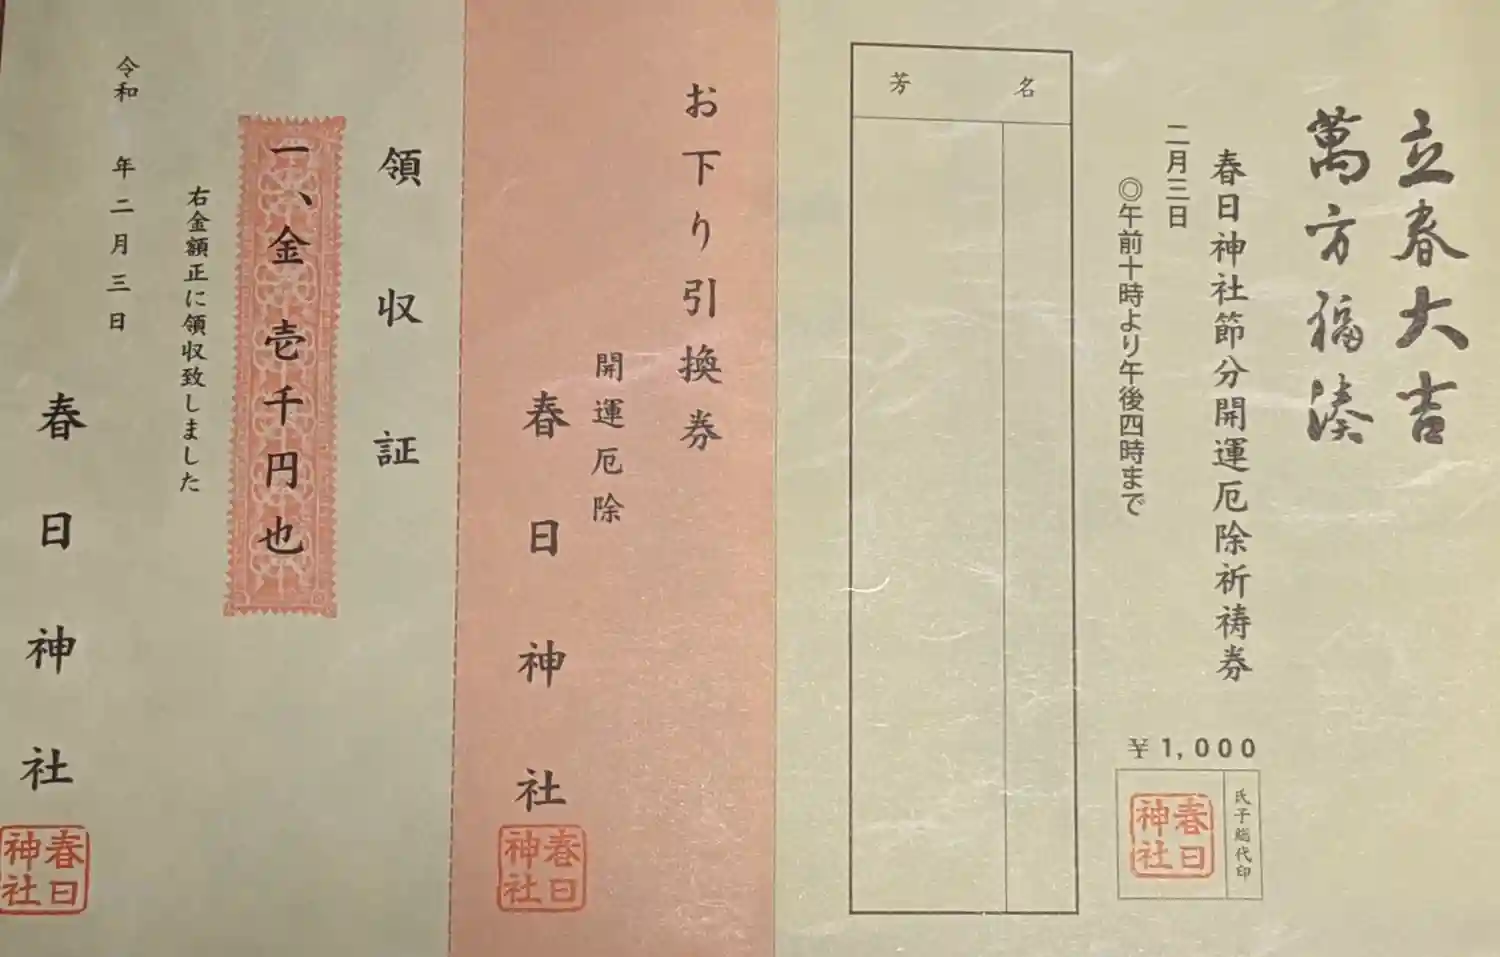 立春大吉
萬方福湊
春日神社節分開運厄除祈祷券
二月三日
◎午前十時より午後四時まで
¥1,000
氏子総代印
春日神社
芳名
お下り引換券
開運厄除
春日神社
春日神社
領収証
一、金壱千円也
右金額正に領収致しました
令和 年二月三日
春日神社
春日神社